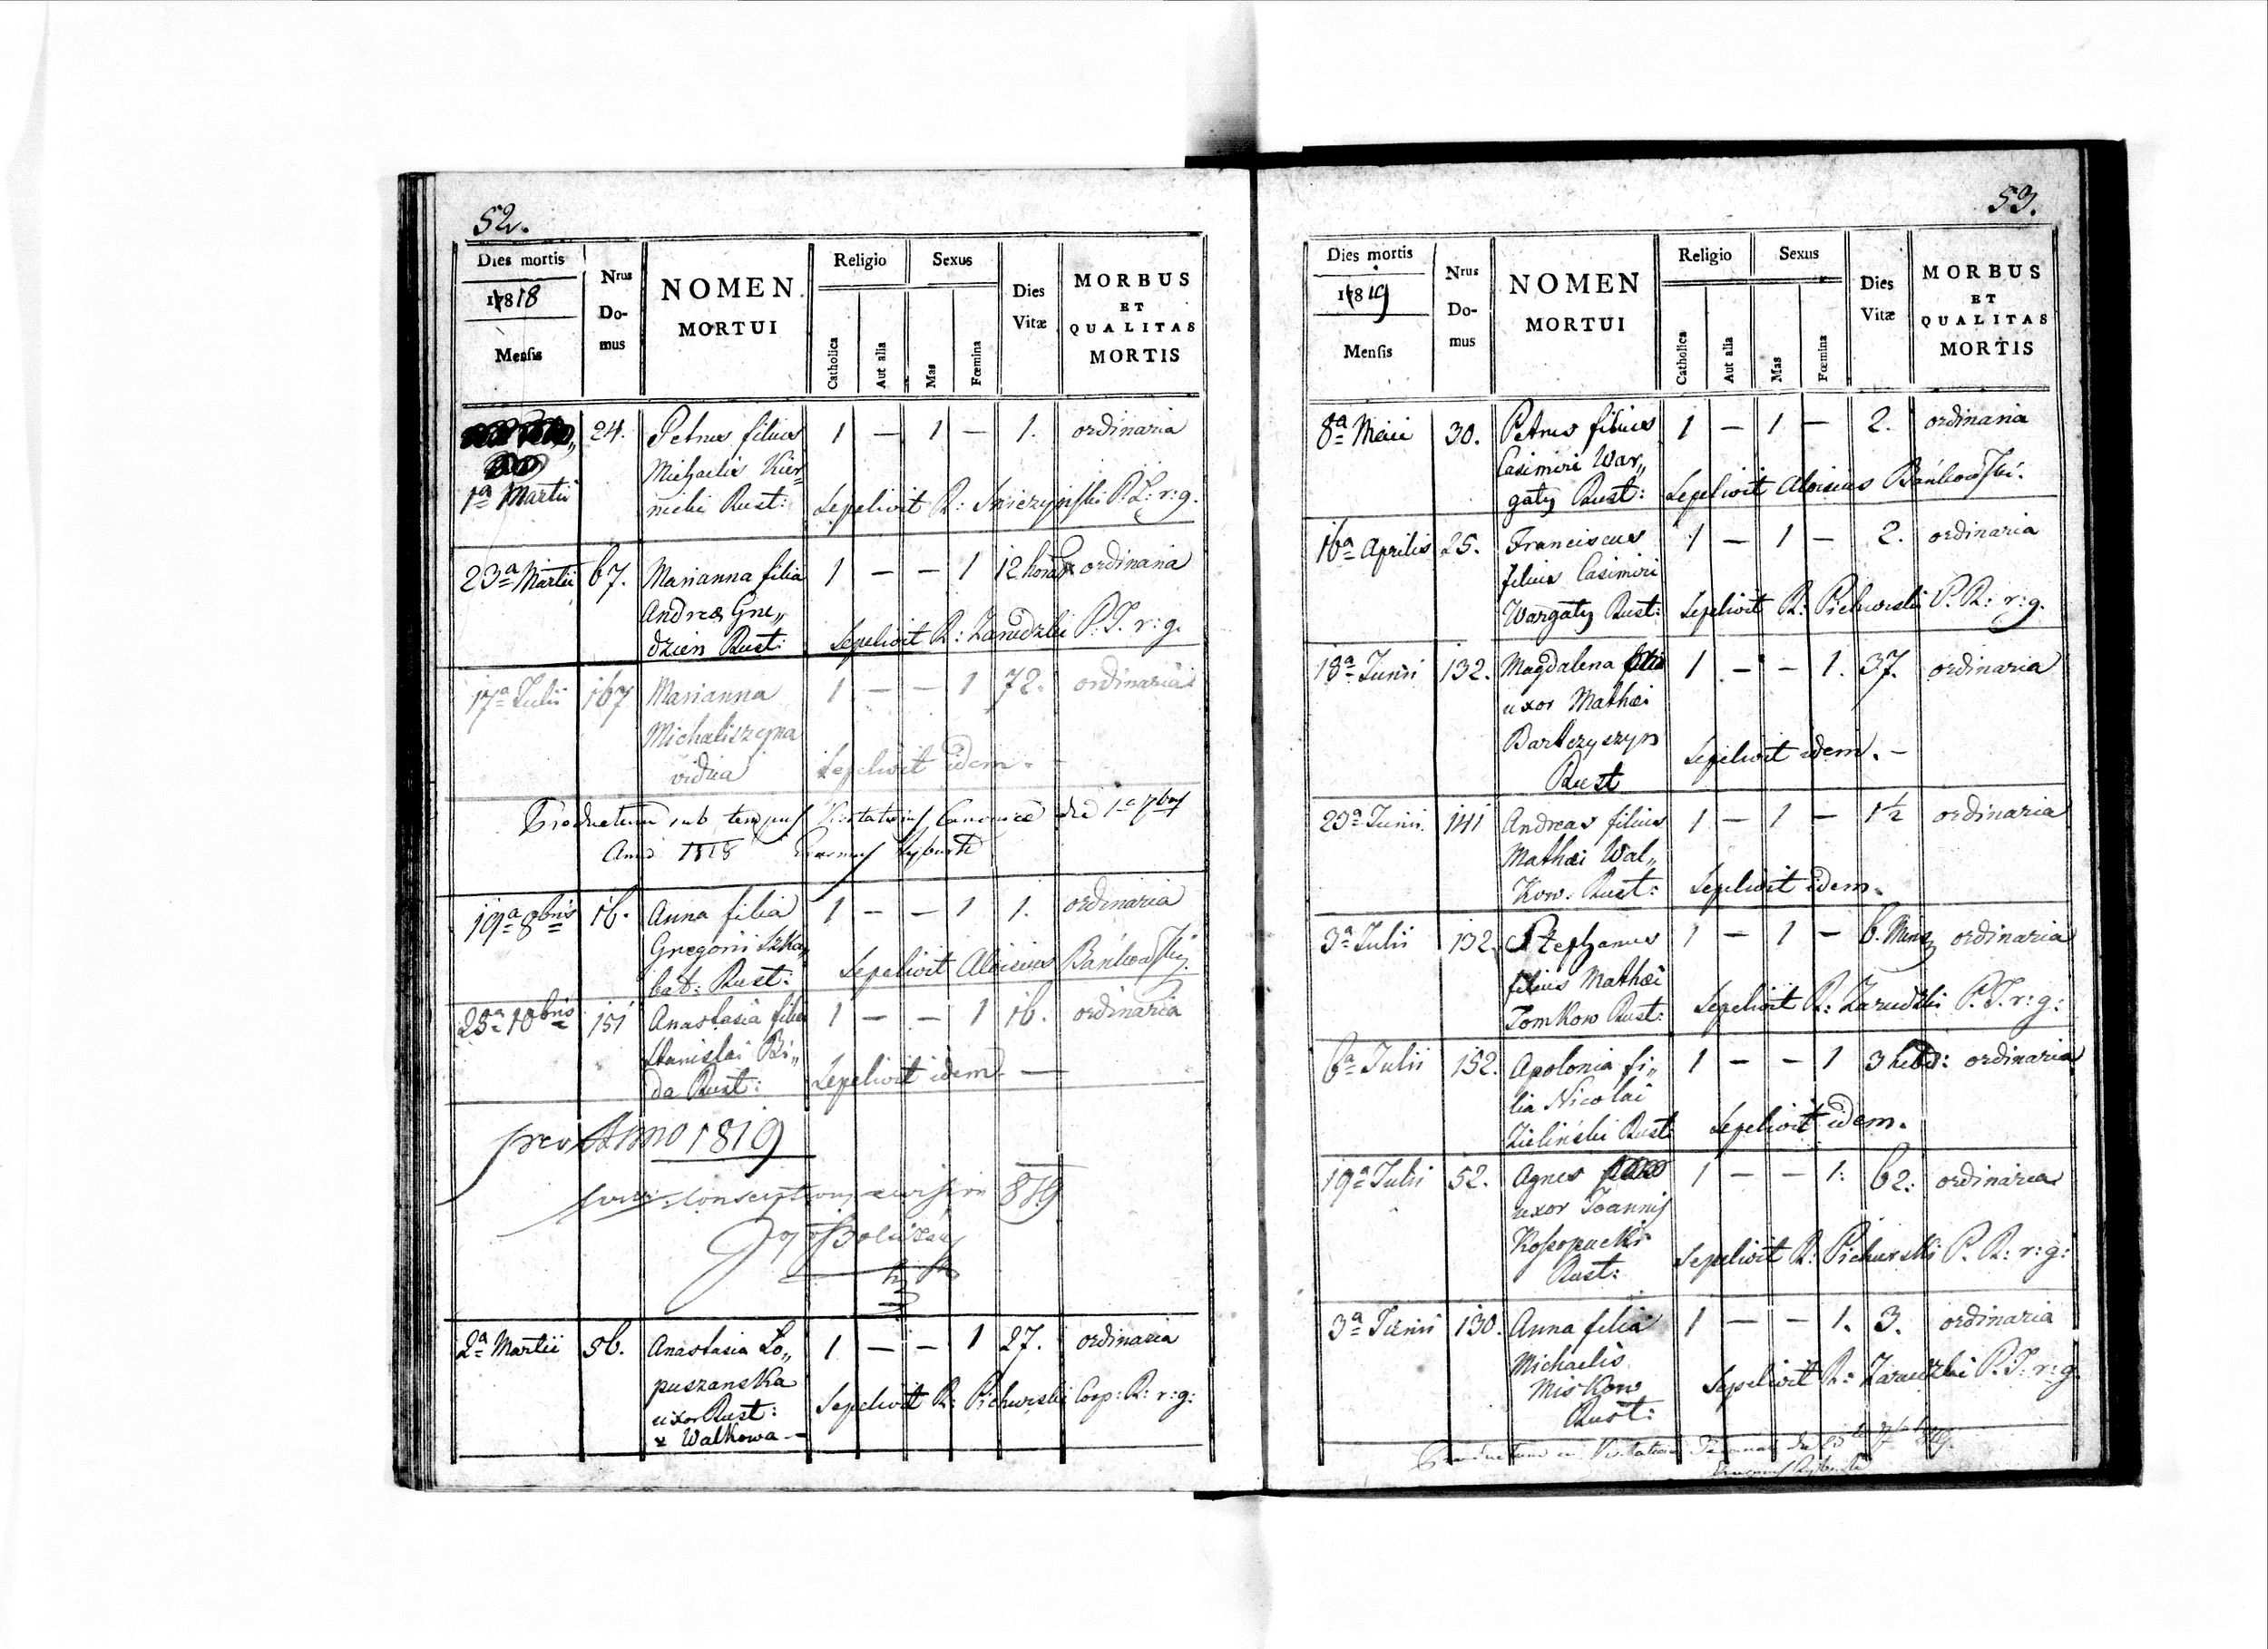 52.
Dies mortis
1818
Mensis
Nrus
Do-
mus
NOMEN
MORTUI
Religio
Catholica
Aut alia
Sexus
Mas
Fœmina
Dies
Vitæ
MORBUS
ET
QUALITAS
MORTIS
1a Martii 24. Petrus filius 1 — 1 — 1. ordinaria
Michaelis Kier
nicki Rust: Sepelivit R: P. L: r: g.
23a Martii 67. Marianna filia 1 — — 1 12 horar ordinaria
Andreæ Gne„
dzien Rust: Sepelivit R: Zarudzki P: I. r: g.
17a Julii 167 Marianna 1 — — 1 72. ordinaria
Michaliszyna
vidua Sepelivit idem. —
Productum sub tempus Visitationis Canonicæ die 1a 7bris
Anni 1818
19a 8bris 16. Anna filia 1 — — 1 1. ordinaria
Gregorii Szka„
bat: Rust: Sepelivit Aloisius Bańkowski.
25a 10bris 151 Anastasia filia 1 — — 1 16. ordinaria
Stanislai Bi„
da Rust: Sepelivit idem —
pro Anno 1819
819
2a Martii 56. Anastasia Lo„ 1 — — 1 27. ordinaria
puszanska
uxor Rust: Sepelivit R: Pichurski Coop: R: r: g:
Walkowa —
53.
Dies mortis
1819
Mensis
Nrus
Do-
mus
NOMEN
MORTUI
Religio
Catholica
Aut alia
Sexus
Mas
Fœmina
Dies
Vitæ
MORBUS
ET
QUALITAS
MORTIS
8a Maii 30. Petrus filius 1 — 1 — 2. ordinaria
Casimiri War„
gaty Rust: Sepelivit Aloisius Bańkowski.
16a Aprilis 25. Franciscus 1 — 1 — 2. ordinaria
filius Casimiri
Wargaty Rust: Sepelivit R: Pichurski P. R: r: g.
18a Junii 132. Magdalena 1 — — 1. 37. ordinaria
uxor Mathæi
Bartczyszyn Sepelivit idem. —
Rust
23a Junii 141 Andreas filius 1 — 1 — 1½ ordinaria
Mathæi Wal„
Kow. Rust: Sepelivit idem.
3a Julii 132. Stephanus 1 — 1 — 6. Mens ordinaria
filius Mathæi
Tomkow Rust: Sepelivit R: Zarudzki P. I. r: g:
6a Julii 152. Apolonia fi„ 1 — — 1 3 hebd: ordinaria
lia Nicolai
Zieliński Rust: Sepelivit idem.
19a Julii 52. Agnes 1 — — 1: 62. ordinaria
uxor Joannis
Kosopucki Sepelivit R: Pichurski P. R: r: g:
Rust:
3a Junii 130. Anna filia 1 — — 1. 3. ordinaria
Michaelis
Miskow Sepelivit R: Zarudzki P. I. r: g.
Rust:
Productum in Visitatione